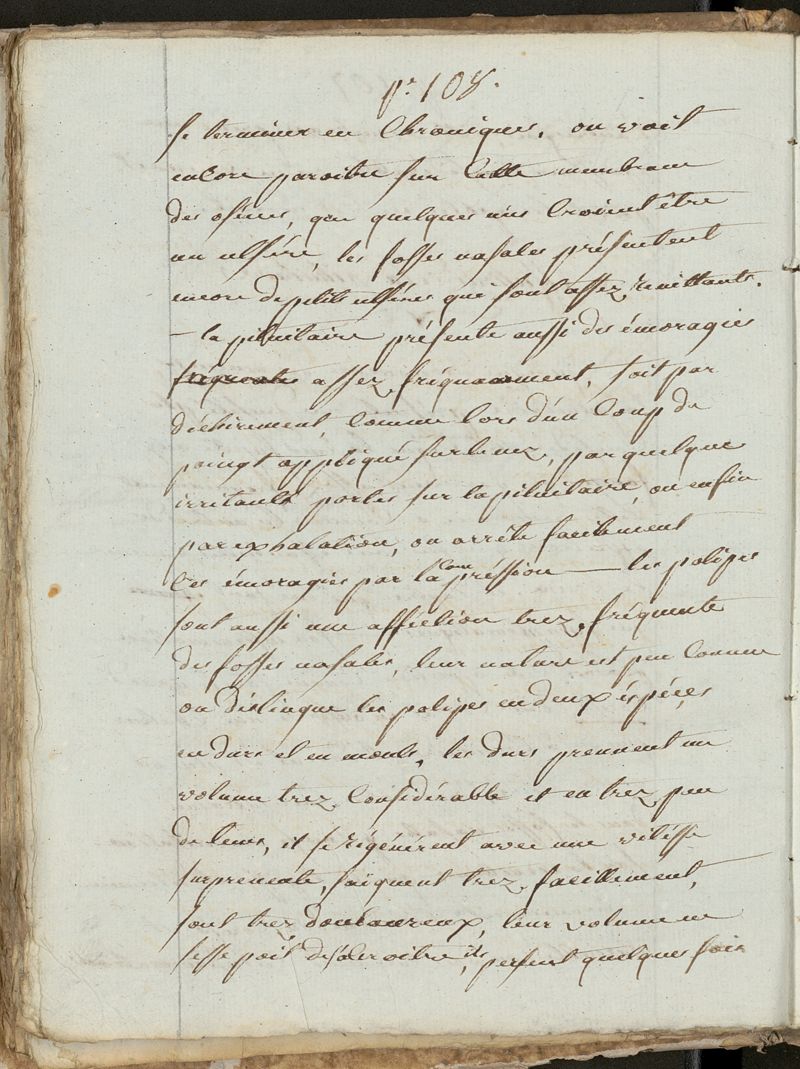 pe 108.
se terminer en Chroniques. on voit
encore paroitre sur cette membrane
des osènes, que quelques uns Croient être
un ulsère, les fosses nasales présentent
encore de petits ulsères qui sont assez, rémittants.
– la pituitaire présente aussi des émoragies
fréquentes assez, fréquament, soit par
déchirement, Comme lors d'un Coup de
poingt appliqué sur le nez, par quelque
irritants portes sur la pituitaire, ou enfin
par exhalation, on arrête facilement
Ces émoragies par la Compréssion — les polipes
sont aussi une affection trez, fréquente
des fosses nasales, leur nature est peu Connue
on distingue les polipes en deux éspéces
en durs et en mouls, les durs prennent un
volume trez, Considérable et en trez, peu
de tems, il se régénèrent avec une vitésse
surprenente, saignent trez, facillement,
sont trez douloureux, leur volume ne
sesse poit de s'acroitre, ils persent quelques fois